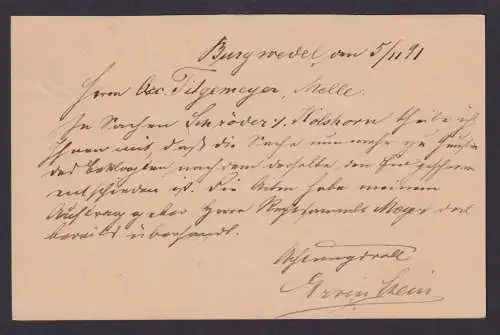 Burgwedel, den 5/11 91
Herrn Oec. Titgemeyer, Melle.
In Sachen Schröder ./. Holshorn theile ich
Ihnen mit, daß die Sache nunmehr zu Gunsten
des Beklagten, nachdem derselbe den Eid geschworen
entschieden ist. Die Acten habe meinem
Auftrag Herrn Rechtsanwalt Meyer dort
bereits übersandt.
Achtungsvoll